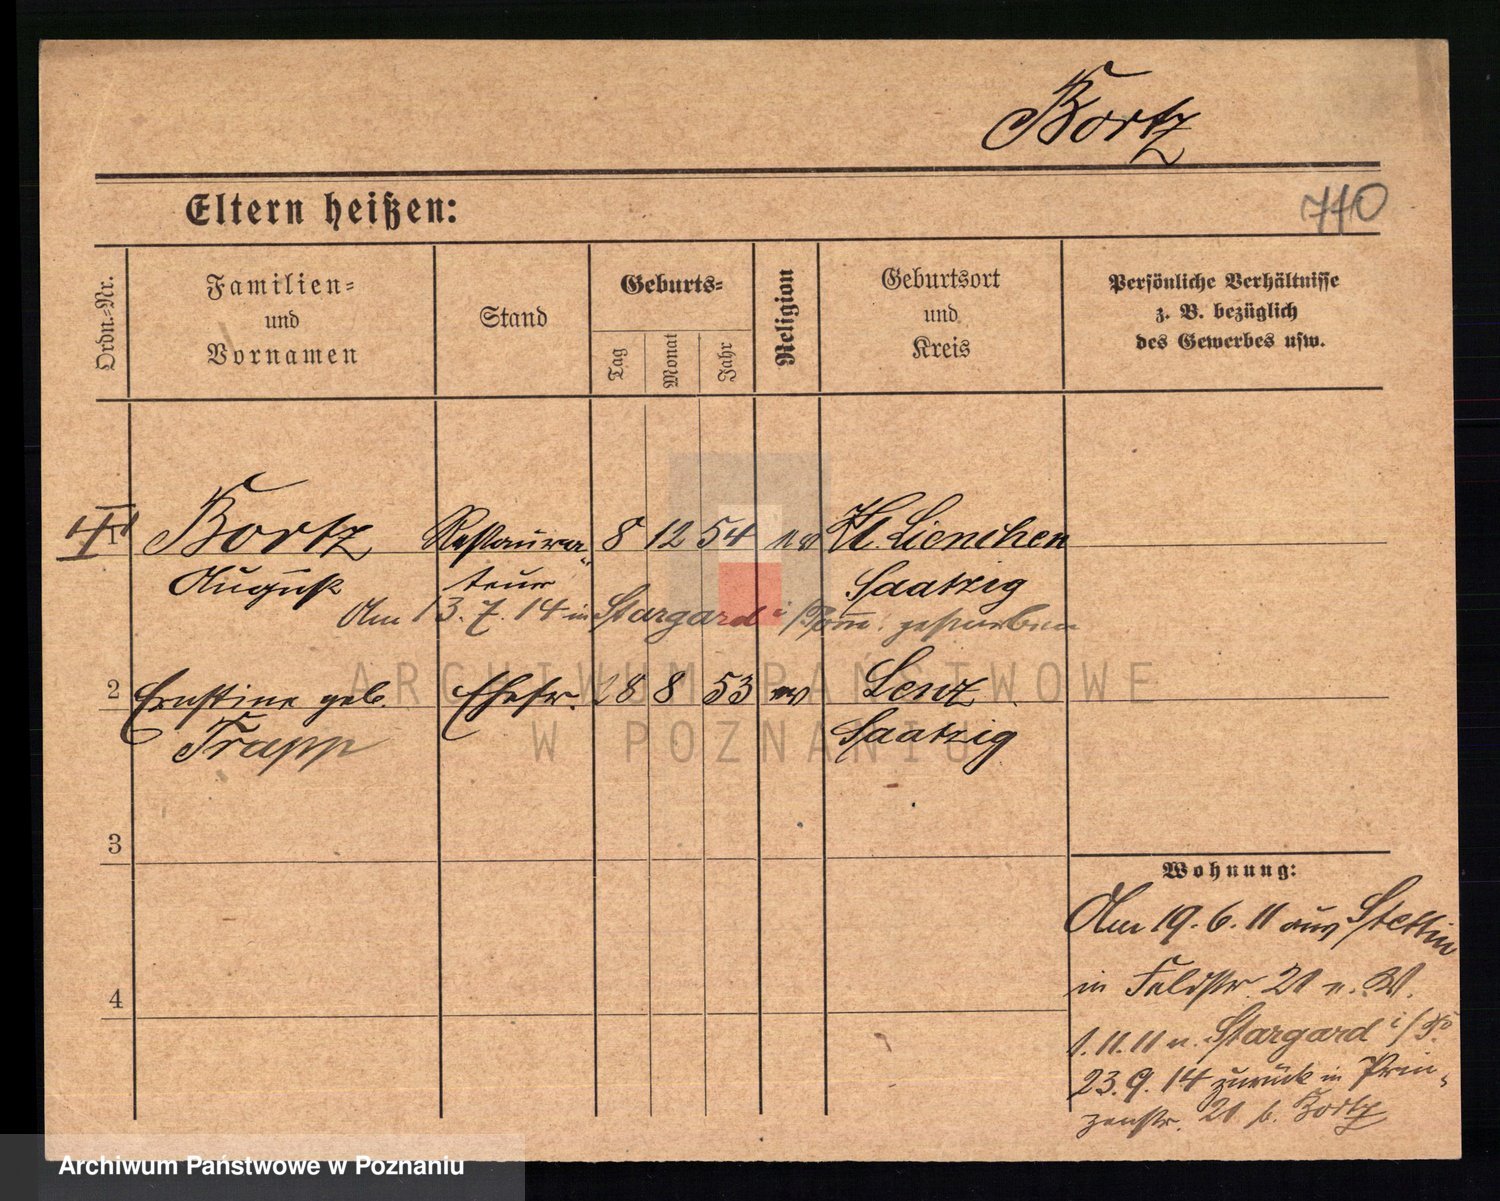 Bortz
Eltern heißen:
Ordn.=Nr.
Familien=
und
Vornamen
Stand
Geburts=
Tag
Monat
Jahr
Religion
Geburtsort
und
Kreis
Persönliche Verhältnisse
z. B. bezüglich
des Gewerbes usw.
1 Bortz Restaura- 8 12 54 ev Kl. Lienichen
August teur Saatzig
Am 13.7.14 in Stargard i/Pom. gestorben
2 Ernstine geb. Ehefr. 28 8 53 ev Lenz
Trapp Saatzig
3
4
Wohnung:
Am 19.6.11 aus Stettin
in Feldstr. 21 n. W.
1.11.11 n. Stargard i/Po
23.9.14 zurück in Prin-
zenstr. 21 b. Bortz
ARCHIWUM PAŃSTWOWE
W POZNANIU
Archiwum Państwowe w Poznaniu